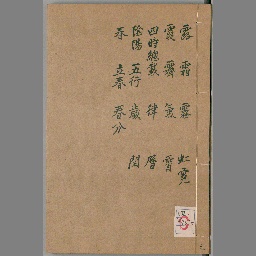 露 霜 霧 虹霓
霞 霽 氣 霄
四時總載 律 曆
陰陽 五行 歲 閏
春 立春 春分